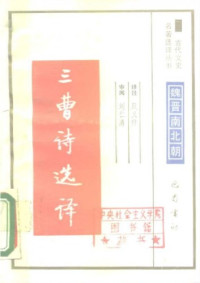 古代文史
名著选译丛书
魏晋南北朝
三曹诗选译
译注 殷义祥
审阅
巴蜀书社
中央社会主义学院
图书馆
藏书